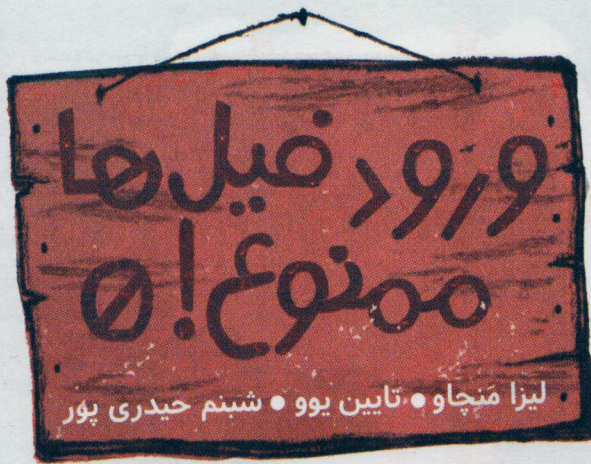 ورود فیل‌ها
ممنوع!
لیزا مَنچاو ● تایین یوو ● شبنم حیدری پور